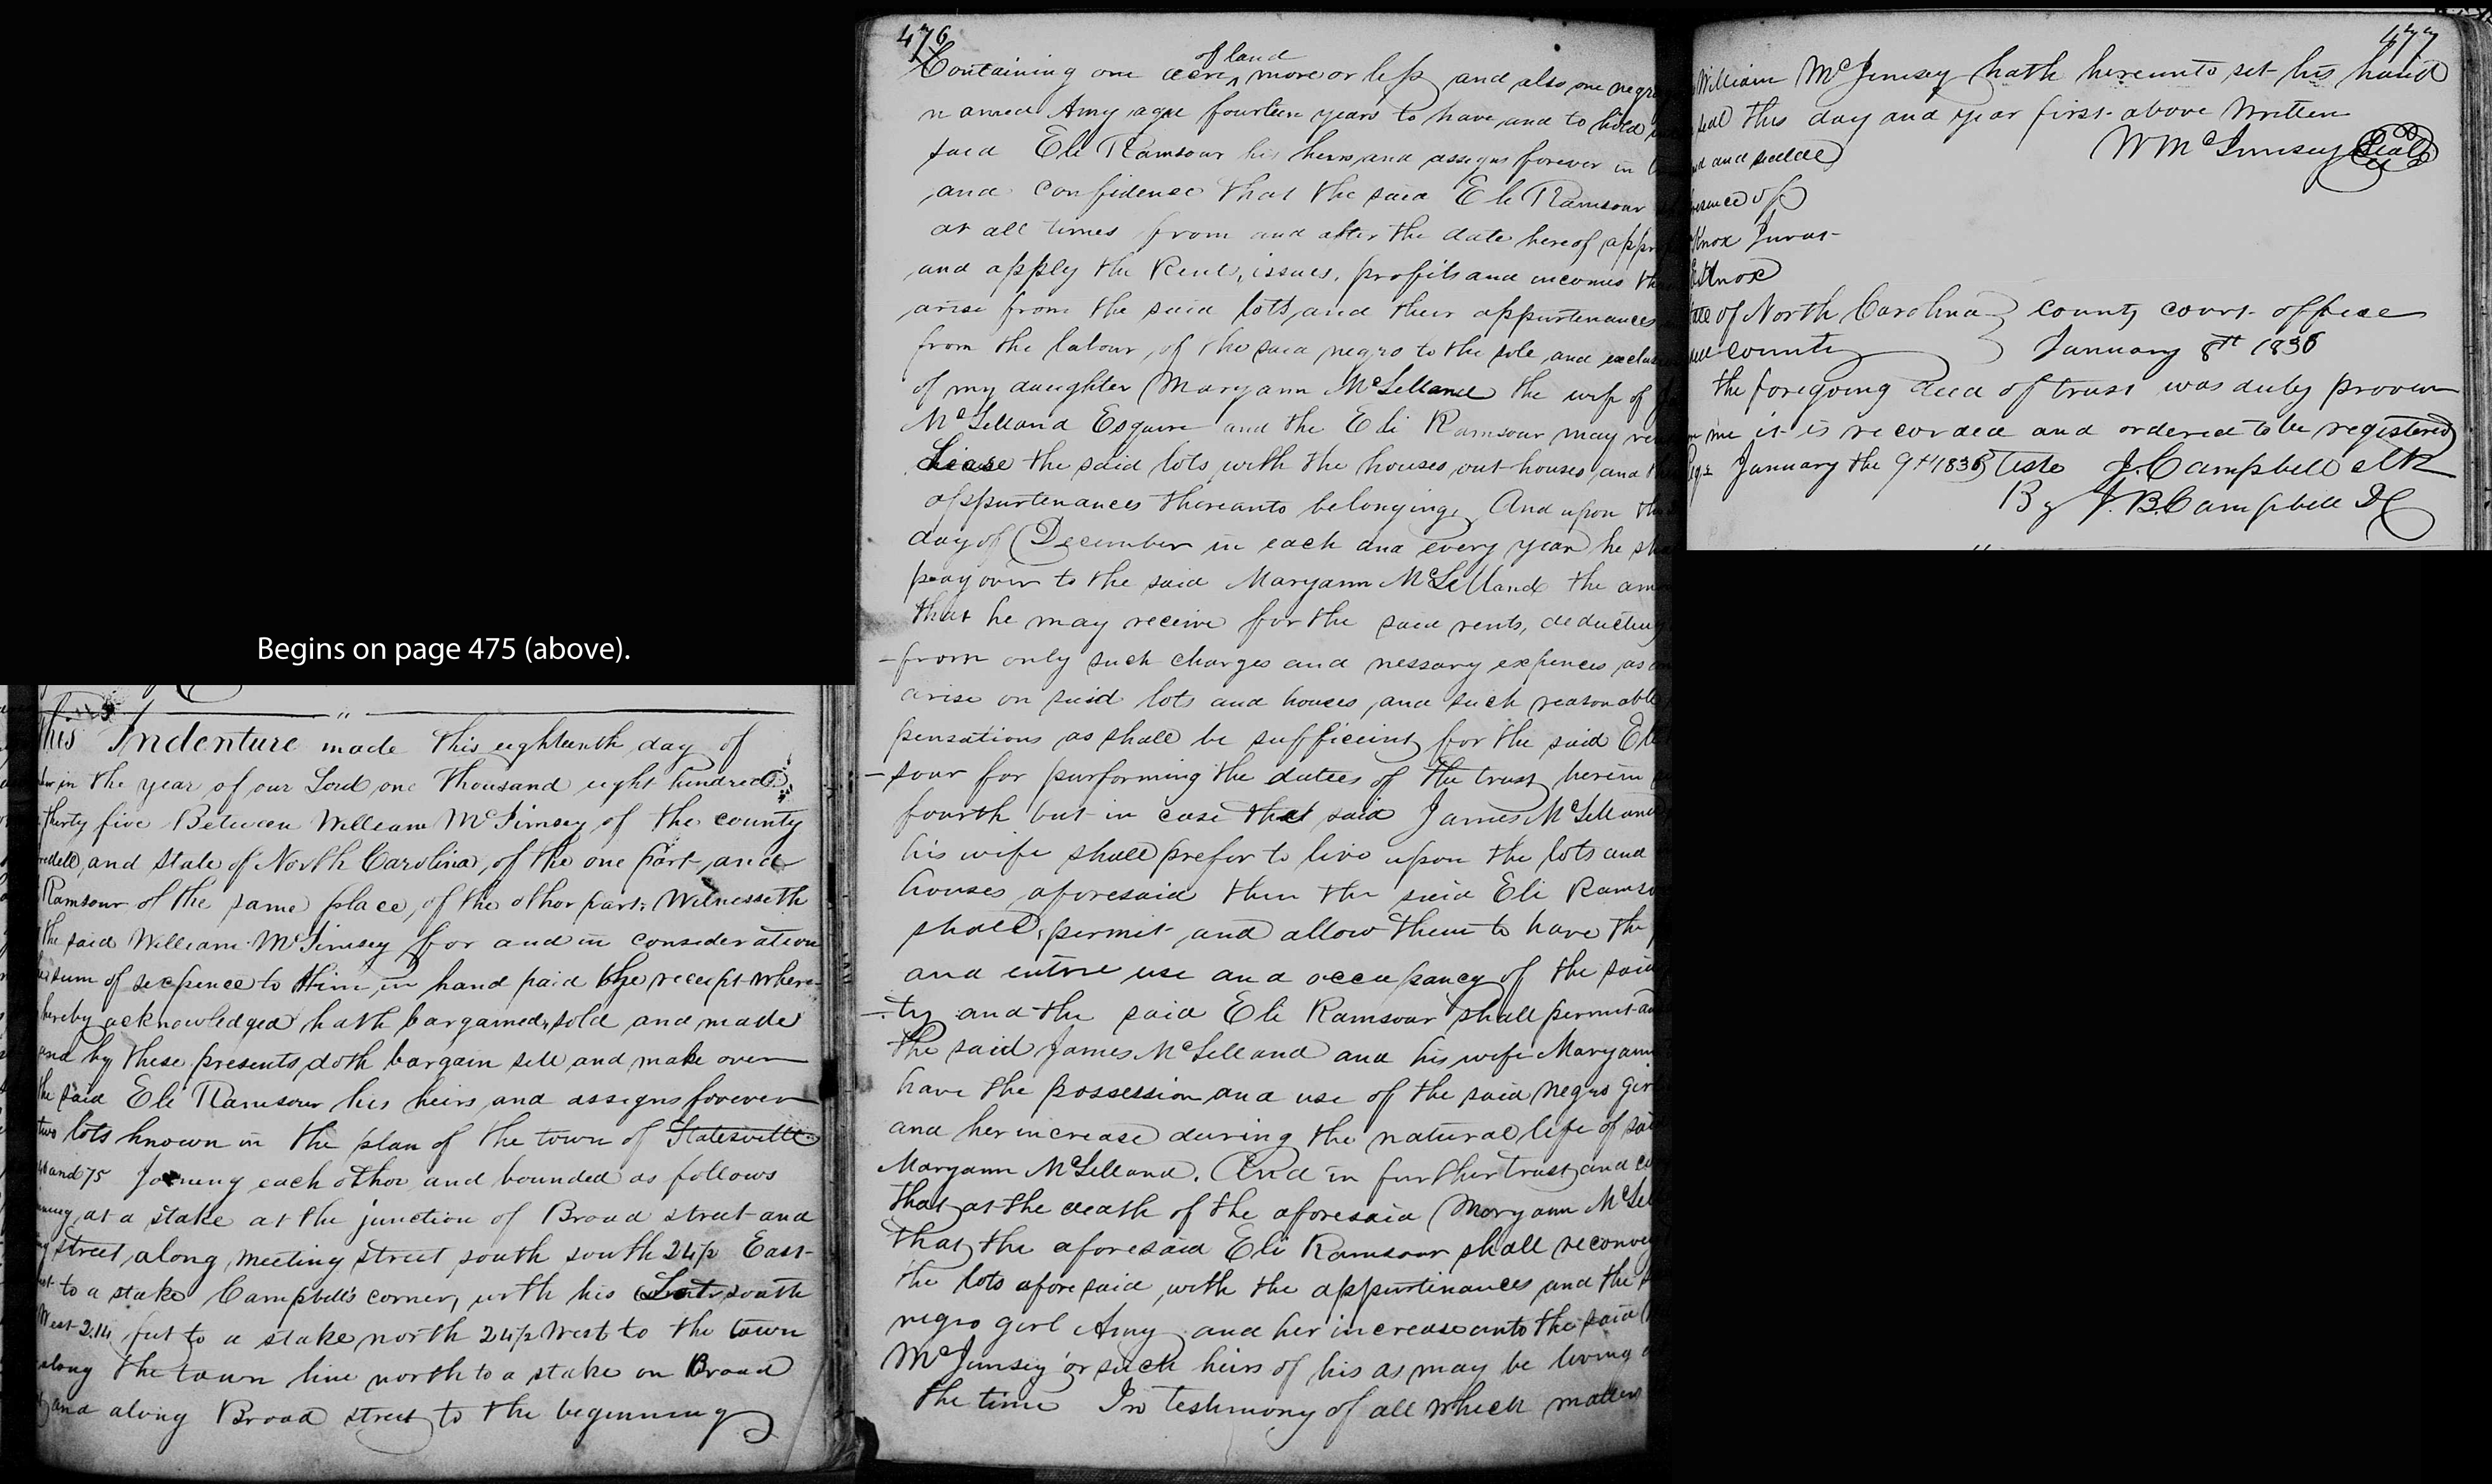 Begins on page 475 (above).
This Indenture made this eighteenth day of
in the year of our Lord one thousand eight hundred
thirty five Between William McJimsey of the county
and State of North Carolina, of the one part, and
Ramsour of the same place, of the other part, Witnesseth
the said William McJimsey for and in consideration
sum of sixpence to Him in hand paid the receipt where-
hereby acknowledged hath bargained, sold and made
and by these presents doth bargain sell and make over
the said Eli Ramsour his heirs and assigns forever
two lots known in the plan of the town of Statesville
and 75 Joining each other and bounded as follows
at a stake at the junction of Broad street and
street, along meeting street south south 24½ East-
to a stake Campbell's corner, with his south
West 214 feet to a stake north 24½ West to the town
along the town line north to a stake on Broad
and along Broad street to the beginning
476
Containing one acre of land more or less and also one negro
named Amy age fourteen years to have and to hold
said Eli Ramsour his heirs and assigns forever in
and confidence that the said Eli Ramsour
at all times from and after the date hereof
and apply the Rent, issues, profits and incomes
arise from the said lots, and their appurtenances
from the labour, of the said negro to the sole and
of my daughter Maryann McLelland the wife of
McLelland Esquire and the Eli Ramsour may
Lease the said lots, with the houses, out houses, and
appurtenances thereanto belonging, And upon the
day of December in each and every year he
pay over to the said Maryann McLelland the
that he may receive for the said rents, deducting
-from only such charges and nessary expences as
arise on said lots and houses, and such reasonable
pensations as shall be sufficient for the said Eli
-sour for purforming the duties of the trust herein
fourth but in case that said James McLelland
his wife shall prefer to live upon the lots and
houses, aforesaid then the said Eli
shall, permit and allow them to have the
and entire use and occupancy of the said
-ty and the said Eli Ramsour shall permit
the said James McLelland and his wife Maryann
have the possession and use of the said negro
and her increase during the natural life of
Maryann McLelland. And in further trust and
that at the death of the aforesaid Maryann
that the aforesaid Eli Ramsour shall
the lots aforesaid, with the appurtinances and the
negro girl Amy and her increase unto the said
McJimsey or such heirs of his as may be living
the time In testimony of all which matters
477
William McJimsey hath hereunto set his hand
seal this day and year first above Written
and sealed WMcJimsey Seal
of
Knox Jurat
Knox
of North Carolina } county court office
county } January 8th 1836
the foregoing deed of trust was duly proven
me it is recorded and ordered to be registered
January the 9th 1836 Teste J. Campbell clk
By J. B. Campbell DC